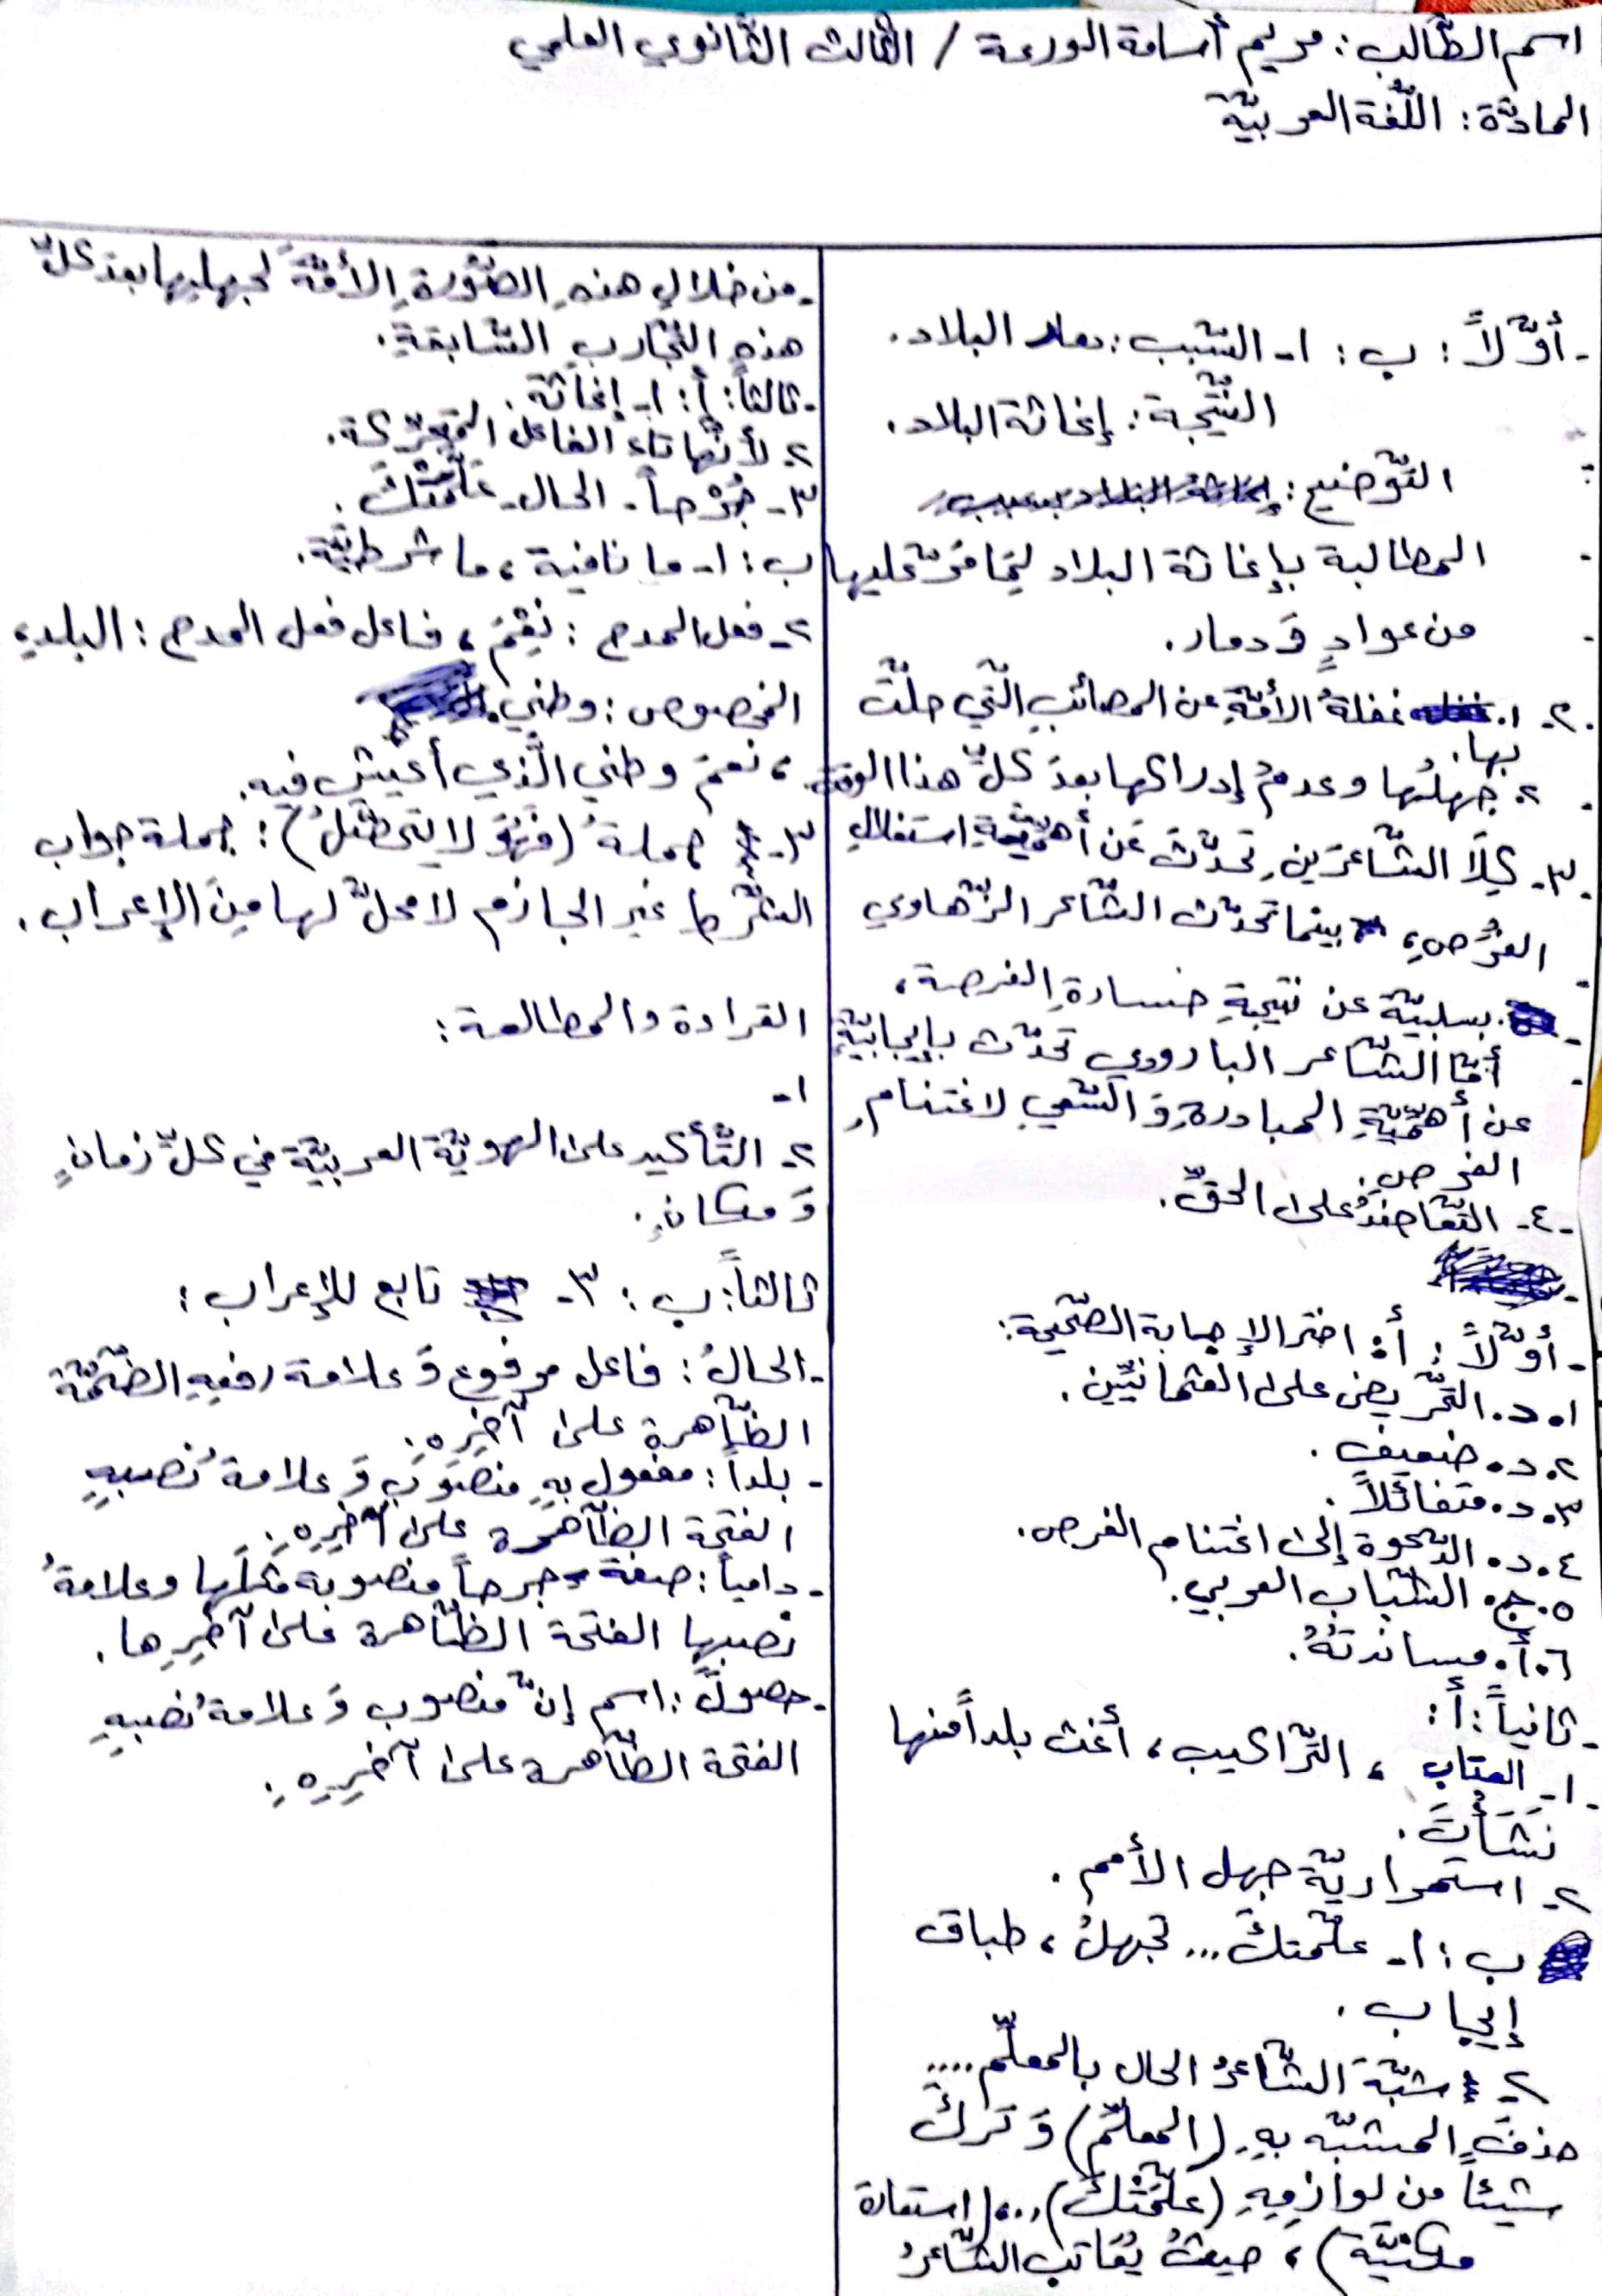 اسم الطّالب: مريم أسامة الورعة / الثالث الثّانوي العلمي
المادّة: اللّغة العربيّة
- أوّلاً: ب: ١- السّبب: دمار البلاد.
النّتيجة: إغاثة البلاد.
التّوضيح:
المطالبة بإغاثة البلاد لِمَا مَرّ عليها
من عوادٍ وَ دمار.
٢- ١. غفلةُ الأمّةِ عن المصائبِ الّتي حلّتْ
بها.
٢. جهلُها وعدمُ إدراكها بعدَ كلِّ هذا الوقت.
٣- كِلَا الشّاعرَين تحدّثَ عَن أهمّيّةِ استغلالِ
الفُرَصِ، بينما تحدّث الشّاعر الزّهاوي
بسلبيّة عن نتيجةِ خسارةِ الفرصة،
أمّا الشّاعر البارودي تحدّث بإيجابيّةٍ
عن أهمّيّةِ المبادرةِ وَ السّعي لاغتنامِ
الفرصِ.
٤- التّعاضدُ على الحقِّ.
- أوّلاً: أ: اختر الإجابة الصّحيحة:
١. د. التّحريض على العثمانيّين.
٢. د. ضعيف.
٣. د. متفائلاً.
٤. د. الدّعوة إلى اغتنام الفرص.
٥. ج. الشّباب العربي.
٦. أ. مساندتهُ.
- ثانياً: أ:
١- العتاب، التّراكيب، أغث بلداً منها
نَشَأْتَ.
٢- استمراريّة جهل الأمم.
ب: ١- علّمتكَ... تجهلُ، طباق
إيجاب.
٢- شبّهَ الشّاعرُ الحال بالمعلّم....
حذفَ المشبّه بهِ (المعلّم) وَ تركَ
شيئاً من لوازمِهِ (علّمَتْكَ)...، (استعارة
مكنيّة)، حيثُ يُعَاتب الشّاعرُ
- من خلالِ هذهِ الصّورةِ الأمّةَ لجهلِها بعدَ كلّ
هذهِ التّجاربِ السّابقةِ.
- ثالثاً: أ: ١- إغاثة.
٢- لأنّها تاء الفاعل المتحرّكة.
٣- جُرْحاً - الحال - علّمَتْكَ.
ب: ١- ما نافية، ما شرطيّة.
٢- فعل المدح: نِعْمَ، فاعل فعل المدح: البلد،
المخصوص: وطني.
، نعمَ وطني الّذي أعيش فيه.
٣- جملةُ (فَهْوَ لا يتحصّلُ): جملة جواب
الشّرط غير الجازم لا محلّ لها مِنَ الإعراب.
القراءة والمطالعة:
١-
٢- التّأكيد على الهويّة العربيّة في كلّ زمانٍ
وَ مكانٍ.
ثالثاً: ب: ٣- تابع للإعراب:
- الحالُ: فاعل مرفوع وَ علامة رفعِهِ الضّمّة
الظّاهرة على آخِرِهِ.
- بلداً: مفعول بهِ منصوب وَ علامةُ نصبِهِ
الفتحة الظّاهرة على آخِرِهِ.
- دامياً: صفة جرحاً منصوبة مثلَها وعلامةُ
نصبِها الفتحة الظّاهرة على آخِرِها.
- حصولَ: اسم إنّ منصوب وَ علامةُ نصبِهِ
الفتحة الظّاهرة على آخِرِهِ.